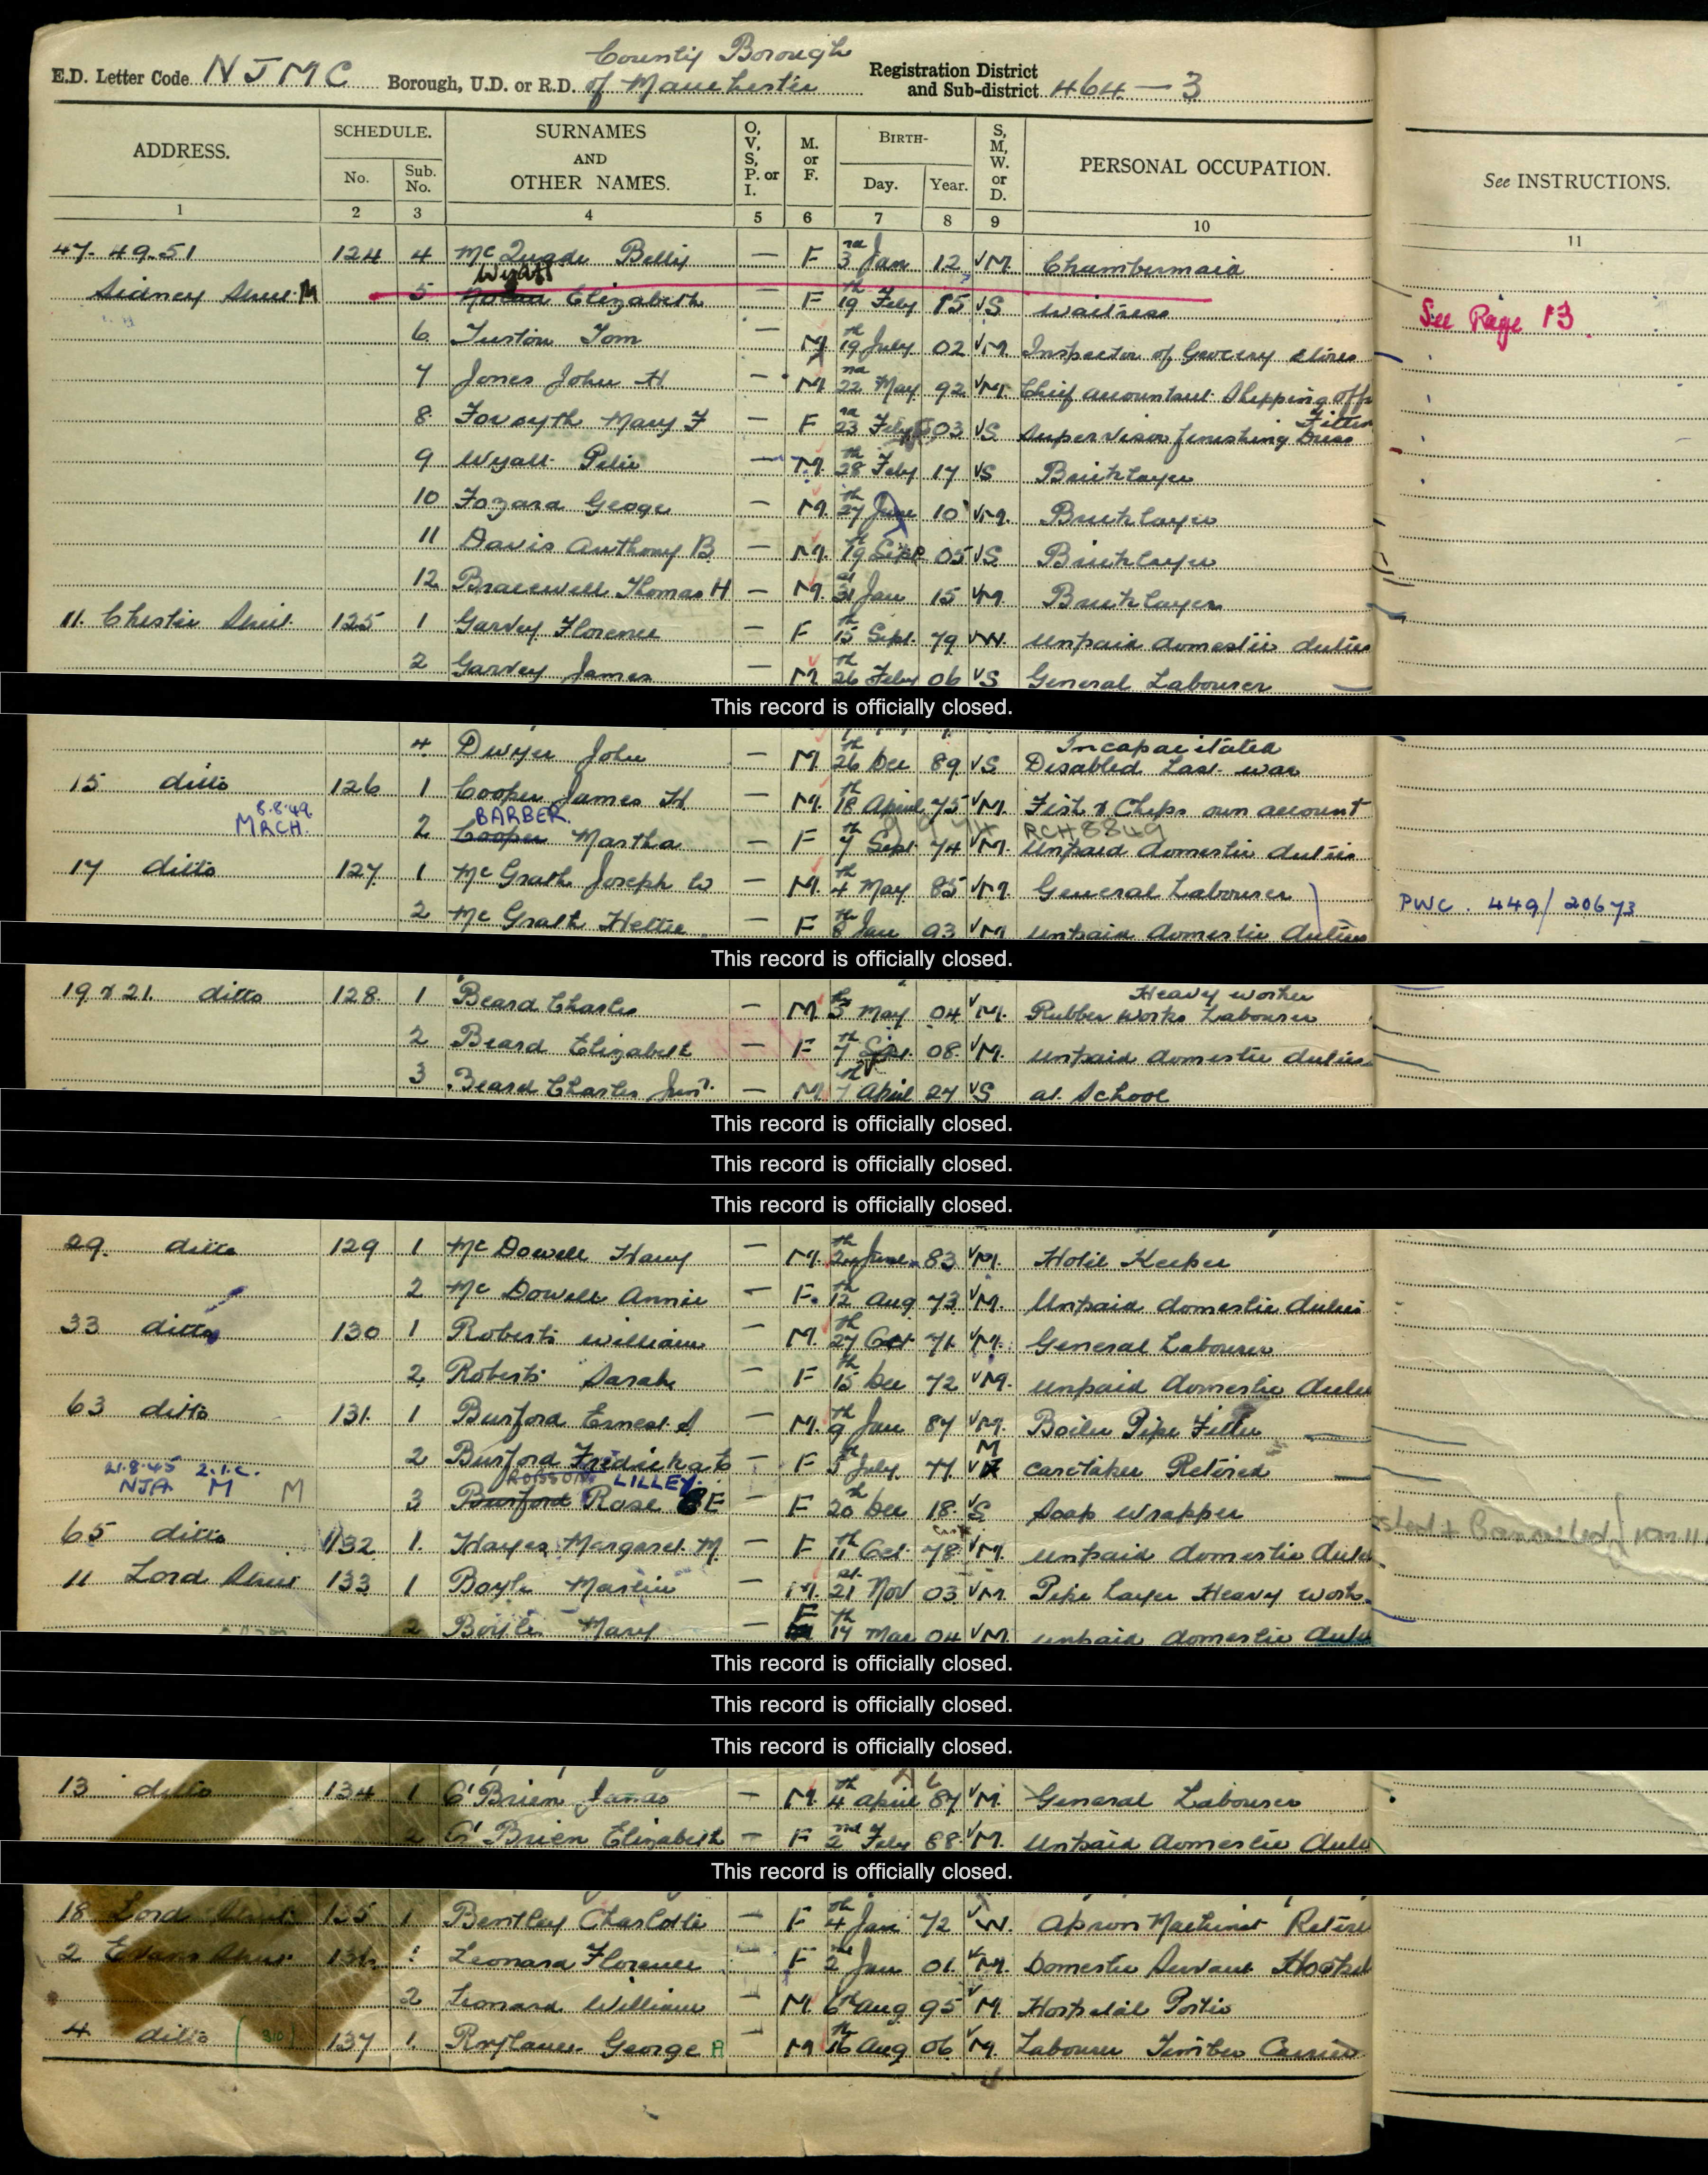 County Borough
E.D. Letter Code NJMC Borough, U.D. or R.D. of Manchester Registration District and Sub-district 464-3
ADDRESS. SCHEDULE. No. Sub. No. SURNAMES AND OTHER NAMES. O, V, S, P. or I. M. or F. BIRTH- Day. Year. S, M, W. or D. PERSONAL OCCUPATION. See INSTRUCTIONS.
1 2 3 4 5 6 7 8 9 10 11
47. 49. 51 124 4 Mc — F 3rd Jan 12 M. Chambermaid
Wyatt
Sidney Street M 5 Elizabeth — F 19th Feby 15 S Waitress
See Page 13
6 Turton Tom — M 19th July 02 M Inspector of Grocery Stores
7 Jones John H — M. 22nd May 92 M. Chief accountant Shipping off
8 Forsyth Mary F — F 23rd Feby 03 S Supervisor finishing Dress Fitter
9 Wyatt — M. 28th Feby 17 S Bricklayer
10 Fozard Geoge — M. 27th June 10 M. Bricklayer
11 Davis Anthony B — M. 19th Sept 05 S Bricklayer
12 Bracewell Thomas H — M 31st Jan 15 M Bricklayer
11. Chester Street 125 1 Garvey Florence — F 15th Sept. 79 W. Unpaid domestic duties
2 Garvey James — M 26th Feby 06 S General Labourer
This record is officially closed.
4 Dwyer John — M 26th Dec 89 S Incapacitated Disabled Last war
15 ditto 126 1 Cooper James H — M. 18th April 75 M. Fish & Chips own account
8.8.49. MRCH. BARBER. RCH 8849
2 Cooper Martha — F 7th Sept 74 M. Unpaid domestic duties
17 ditto 127 1 Mc Grath Joseph W — M. 4th May 85 M. General Labourer
PWC. 449/20673
2 Mc Grath Hettie — F 8th Jan 93 M Unpaid domestic duties
This record is officially closed.
19 & 21. ditto 128. 1 Beard Charles — M 5th May 04 M. Heavy worker Rubber Works Labourer
2 Beard Elizabeth — F 7th Sept. 08 M. Unpaid domestic duties
3 Beard Charles Junr. — M 7th April 27 S at School
This record is officially closed.
This record is officially closed.
This record is officially closed.
29. ditto 129 1 Mc Dowell Harry — M. June 83 M. Hotel Keeper
2 Mc Dowell Annie — F. 12th Aug 73 M. Unpaid domestic duties
33 ditto 130 1 Roberts William — M. 27th Oct 71 M. General Labourer
2 Roberts Sarah — F 15th Dec 72 M. Unpaid domestic dutie
63 ditto 131. 1 Burford Ernest S — M. 9th Jan 87 M. Boiler Pipe Fitter
2 Burford — F July 77 M Caretaker Retired
21.8.45 2.I.C. NJA M M ROBSON. LILLEY.
3 Burford Rose E — F 20th Dec 18 S Soap Wrapper
65 ditto 132 1. Hayes Margaret M. — F 11th Oct 78 M. Unpaid domestic dutie
11 Lord Street 133 1 Boyle Martin — M. 21st Nov 03 M Pipe Layer Heavy work.
2 Boyle Mary — F 17th Mar 04 M. Unpaid domestic dutie
This record is officially closed.
This record is officially closed.
This record is officially closed.
13 ditto 134 1 O'Brien James — M. 4th April 87 M. General Labourer
2 O'Brien Elizabeth — F 2nd Feby 88 M. Unpaid domestic dutie
This record is officially closed.
18 Lord Street 135 1 Bentley Charlotte — F 4th Jan 72 W. Apron Machinist Retire
2 Evans Street 136 1 Leonard Florence — F 2nd Jan 01. M. Domestic Servant
2 Leonard William M. 6th Aug 95 M. Hospital Porter
4 ditto (310) 137 1. George A — M 16th Aug 06 M. Labourer Timber Carrier